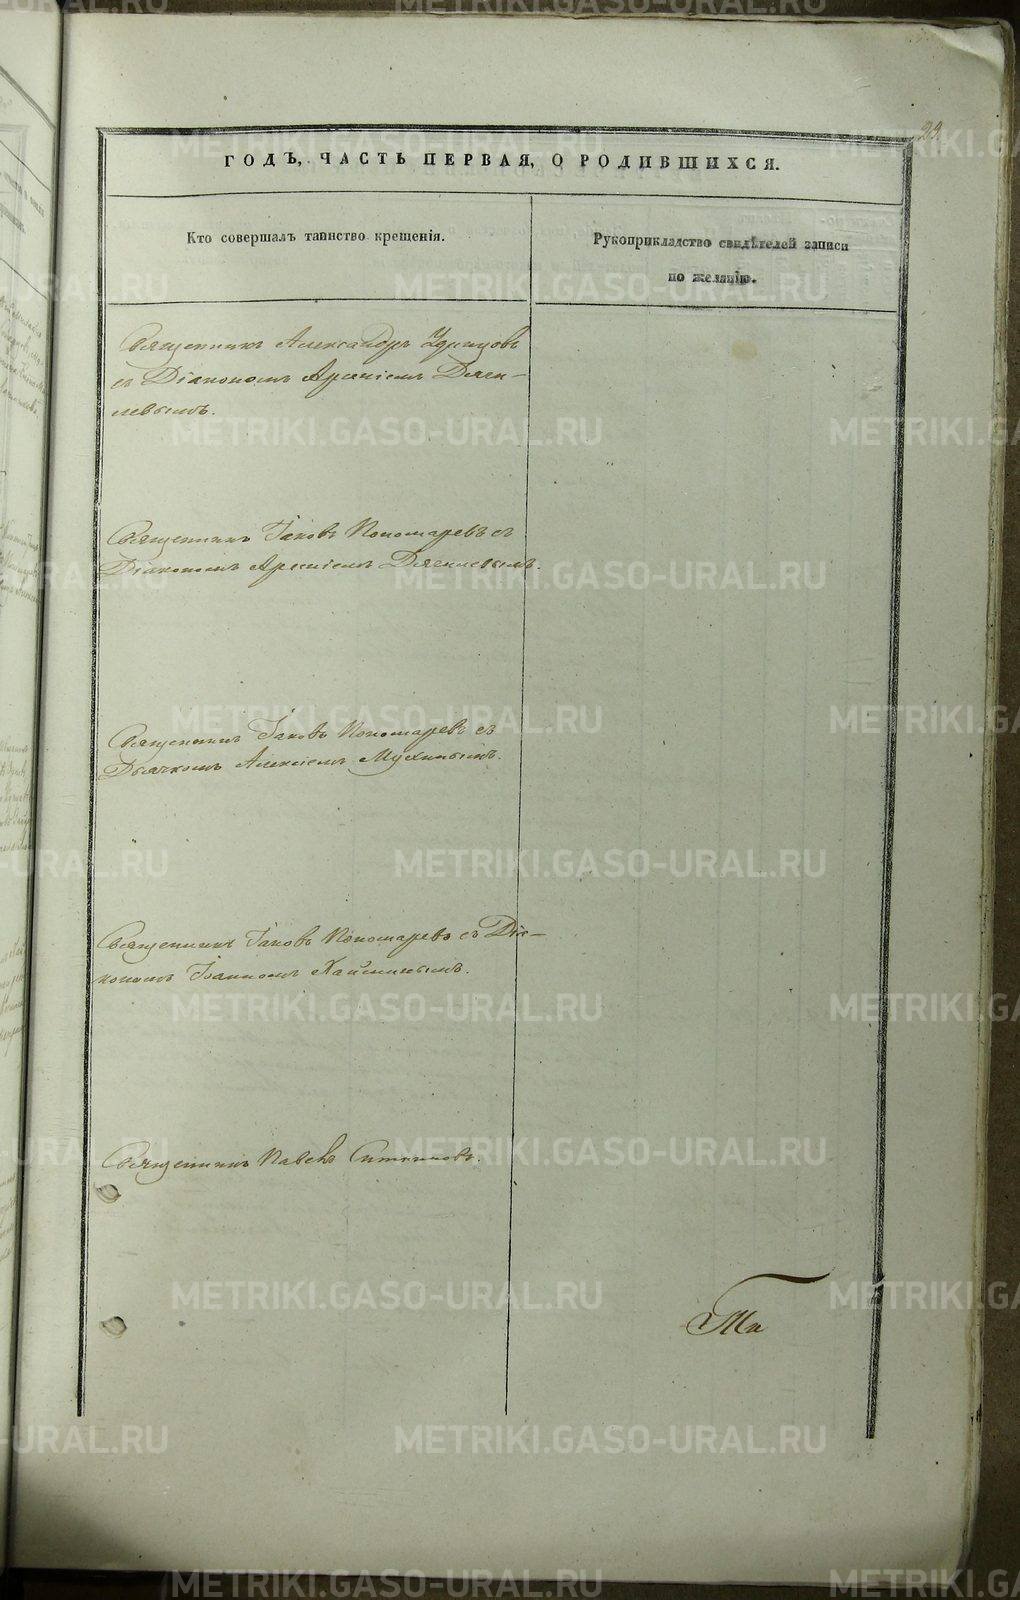 29.
ГОДЪ, ЧАСТЬ ПЕРВАЯ, О РОДИВШИХСЯ.
Кто совершалъ таинство крещенія.
Рукоприкладство свидѣтелей записи
по желанію.
Священникъ Александръ Удинцовъ
съ Діакономъ Арсеніемъ Дягилевымъ
Священникъ Іаковъ Пономаревъ съ
Діакономъ Арсеніемъ Дягилевымъ.
Священникъ Іаковъ Пономаревъ съ
Дьячкомъ Алексіемъ Мухинымъ.
Священникъ Іаковъ Пономаревъ съ Діа-
кономъ Іоанномъ
Священникъ Павелъ Ситниковъ.
METRIKI.GASO-URAL.RU